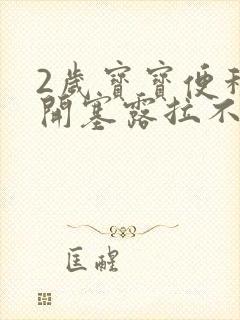 2歲寶寶便
開塞露拉不
匡醒